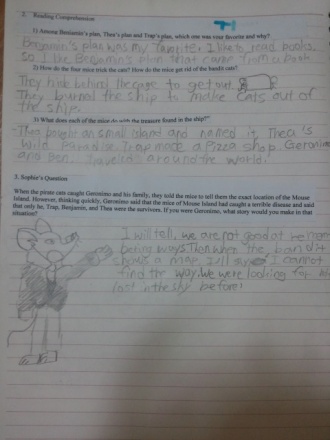 2. Reading Comprehension
1) Among Benjamin's plan, Thea's plan and Trap's plan, which one was your favorite and why?
Benjamin's plan was my favorite. I like to read books.
so I like Benjamin's plan that came from a book
2) How do the four mice trick the cats? How do the mice get rid of the bandit cats?
They hide behind the cage to get out.
They burned the ship to make cats out of
the ship.
3) What does each of the mice do with the treasure found in the ship?
Thea bought an small island and named it Thea's
Wild Paradise. Trap made a Pizza shop. Geronimo
and Ben. Traveled around the world.
3. Sophie's Question
When the pirate cats caught Geronimo and his family, they told the mice to tell them the exact location of the Mouse
Island. However, thinking quickly, Geronimo said that the mice of Mouse Island had caught a terrible disease and said
that only he, Trap, Benjamin, and Thea were the survivors. If you were Geronimo, what story would you make in that
situation?
I will tell, we are not good at remem
bering ways. Then when the bandit
shows a map, I'll say I cannot
find the way. We were looking for
lost in the sky before!